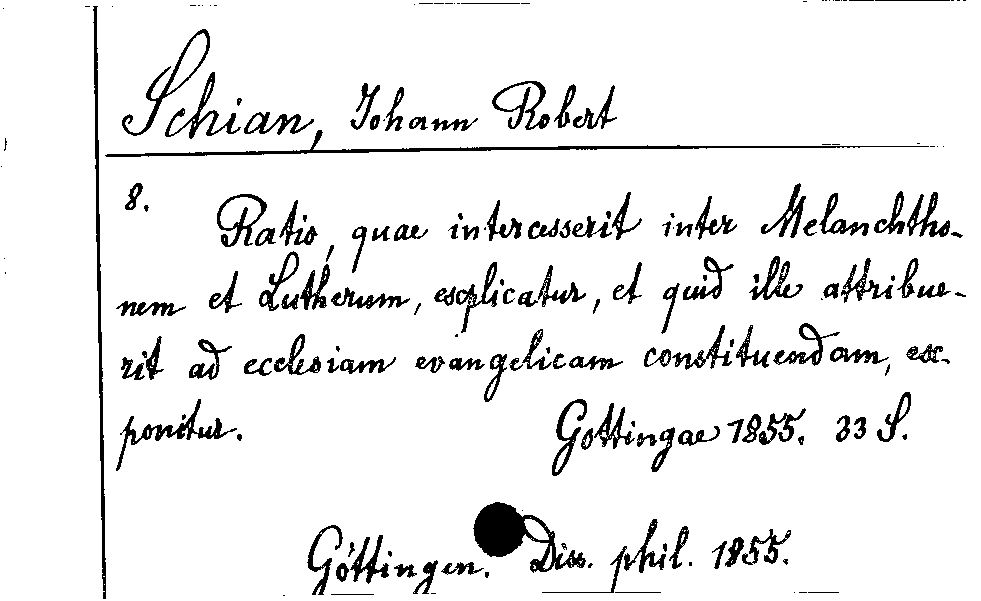 Schian, Johann Robert
8.
Ratio, quae intercesserit inter Melanchtho-
nem et Lutherum, explicatur, et quid ille attribue-
rit ad ecclesiam evangelicam constituendam, ex-
ponitur.
Gottingae 1855. 33 S.
Göttingen. Diss. phil. 1855.